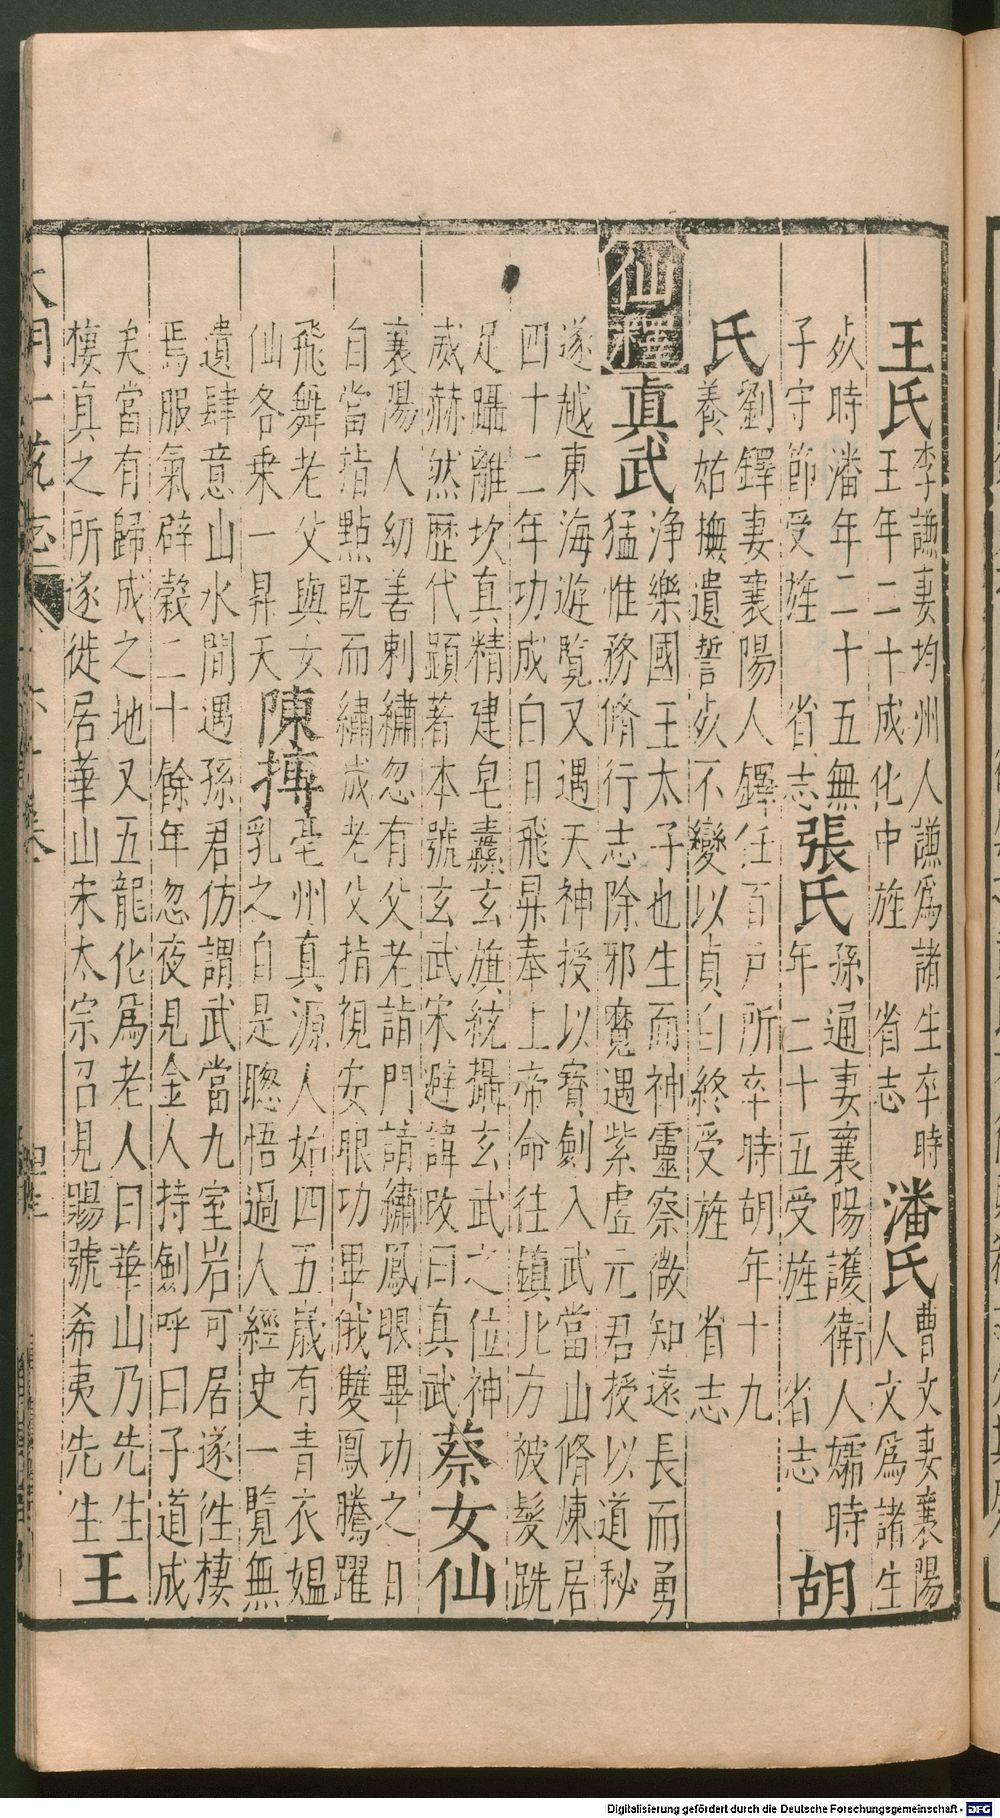 王氏李謙妻均州人謙爲諸生卒時
王年二十成化中旌　省志
潘氏曹文妻襄陽
人文爲諸生
歿時潘年二十五無
子守節受旌　省志
張氏孫通妻襄陽護衛人孀時
年二十五受旌　省志
胡
氏劉鐸妻襄陽人鐸任百戶所卒時胡年十九
養姑撫遺誓歿不變以貞白終受旌　省志
仙釋
真武淨樂國王太子也生而神靈察微知遠長而勇
猛惟務脩行志除邪魔遇紫虛元君授以道秘
遂越東海遊覽又遇天神授以寳劍入武當山脩煉居
四十二年功成白日飛昇奉上帝命往鎮北方被髮跣
足躡離坎真精建皂纛玄旗統攝玄武之位神
威赫然歷代顯著本號玄武宋避諱改曰真武
蔡女仙
襄陽人幼善刺繡忽有父老詣門請繡鳳眼畢功之日
自當指點既而繡成老父指視安眼功畢俄雙鳳騰躍
飛舞老父與女
仙各乗一昇天
陳摶亳州真源人始四五歳有青衣媼
乳之自是聰悟過人經史一覽無
遺肆意山水間遇孫君仿謂武當九室岩可居遂往棲
焉服氣辟穀二十餘年忽夜見金人持劍呼曰子道成
矣當有歸成之地又五龍化爲老人曰華山乃先生
棲真之所遂徙居華山宋太宗召見賜號希夷先生
王
大明一統志
Digitalisierung gefördert durch die Deutsche Forschungsgemeinschaft - DFG